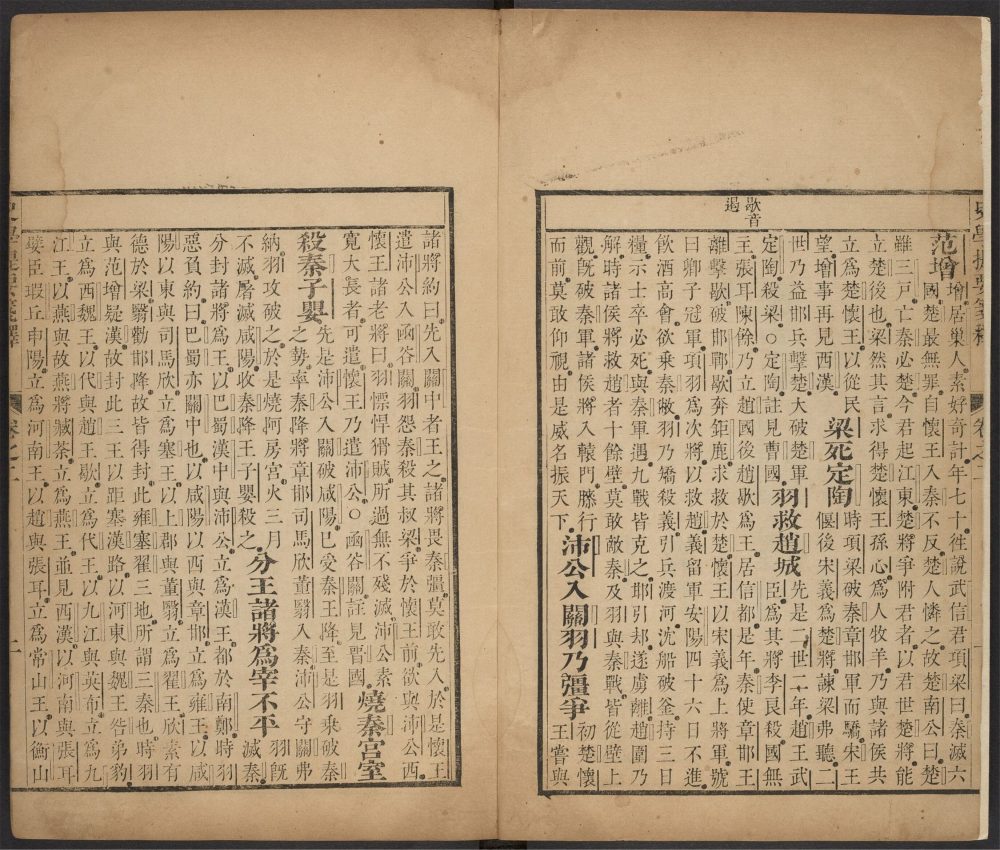 歇音
遏
范增增居巢人素好奇計年七十徃說武信君項梁曰秦滅六
國楚最無罪自懷王入秦不反楚人憐之故楚南公曰楚
雖三戸亡秦必楚今君起江東楚將爭附君者以君世楚將能
立楚後也梁然其言求得楚懷王孫心爲人牧羊乃與諸侯共
立爲楚懷王以從民
望增事再見西漢
梁死定陶時項梁破秦章邯軍而驕宋王
偃後宋義爲楚將諫梁弗聽二
世乃益邯兵擊楚大破楚軍
定陶殺梁○定陶註見曹國
羽救趙城先是二世二年趙王武
臣爲其將李良殺國無
王張耳陳餘乃立趙國後趙歇爲王居信都是年秦使章邯王
離擊歇破邯鄲歇奔鉅鹿求救於楚懷王以宋義爲上將軍號
曰卿子冠軍項羽爲次將以救趙義留軍安陽四十六日不進
飲酒高會欲乗秦敝羽乃矯殺義引兵渡河沈船破釜持三日
糧示士卒必死與秦軍遇九戰皆克之邯引却遂虜離趙圍乃
解時諸侯將救趙者十餘壁莫敢敵秦及羽與秦戰皆從壁上
觀旣破秦軍諸侯將入轅門膝行
而前莫敢仰視由是威名振天下
沛公入關羽乃彊爭初楚懷
王嘗與
諸將約曰先入關中者王之諸將畏秦彊莫敢先入於是懷王
遣沛公入函谷關羽怨秦殺其叔梁爭於懷王前欲與沛公西
懷王諸老將曰羽慓悍猾賊所過無不殘滅沛公素
寬大長者可遣懷王乃遣沛公○函谷關註見晋國
燒秦宮室
殺秦子嬰先是沛公入關破咸陽巳受秦王降至是羽乗破秦
之勢率秦降將章邯司馬欣董翳入秦沛公守關弗
納羽攻破之於是燒阿房宮火三月
不滅屠滅咸陽收秦降王子嬰殺之
分王諸將爲宰不平羽旣
滅秦
分封諸將爲王以巴蜀漢中與沛公立爲漢王都於南鄭時羽
惡負約曰巴蜀亦關中也以咸陽以西與章邯立爲雍王以咸
陽以東與司馬欣立爲塞王以上郡與董翳立爲翟王欣素有
德於梁翳勸邯降故皆得封此雍塞翟三地所謂三秦也時羽
與范增疑漢故封此三王以距塞漢路以河東與魏王咎弟豹
立爲西魏王以代與趙王歇立爲代王以九江與英布立爲九
江王以燕與故燕將臧荼立爲燕王並見西漢以河南與張耳
嬖臣瑕丘申陽立爲河南王以趙與張耳立爲常山王以衡山